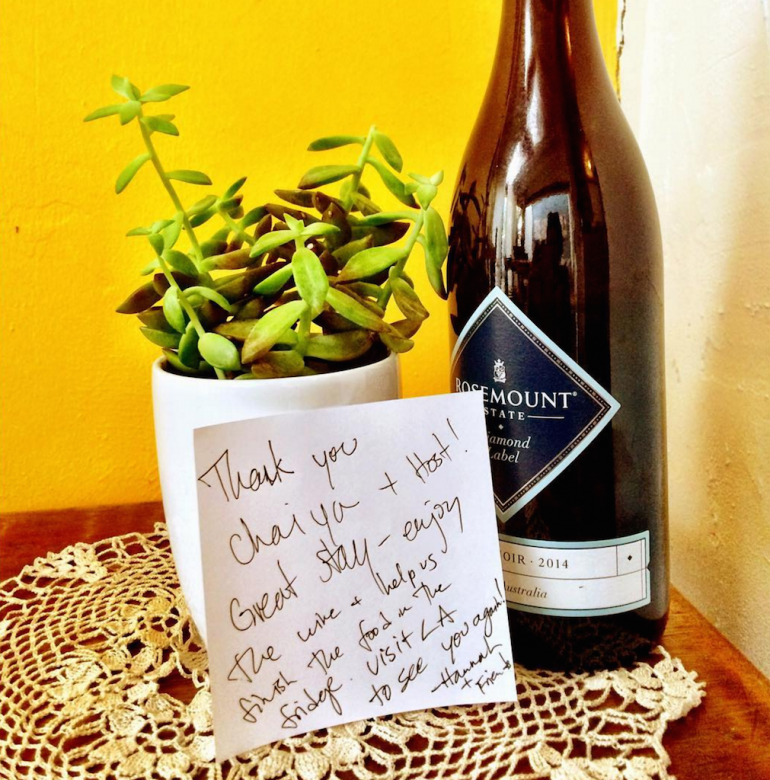 Thank you
Chaiya + Host!
Great stay - enjoy
the wine + help us
finish the food in the
fridge. visit LA
to see you again!
- Hannah
+ Friends
ROSEMOUNT®
ESTATE
Diamond
Label
OIR · 2014
Australia